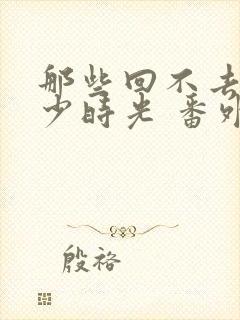 那些回不去
少时光 番外
殷袼